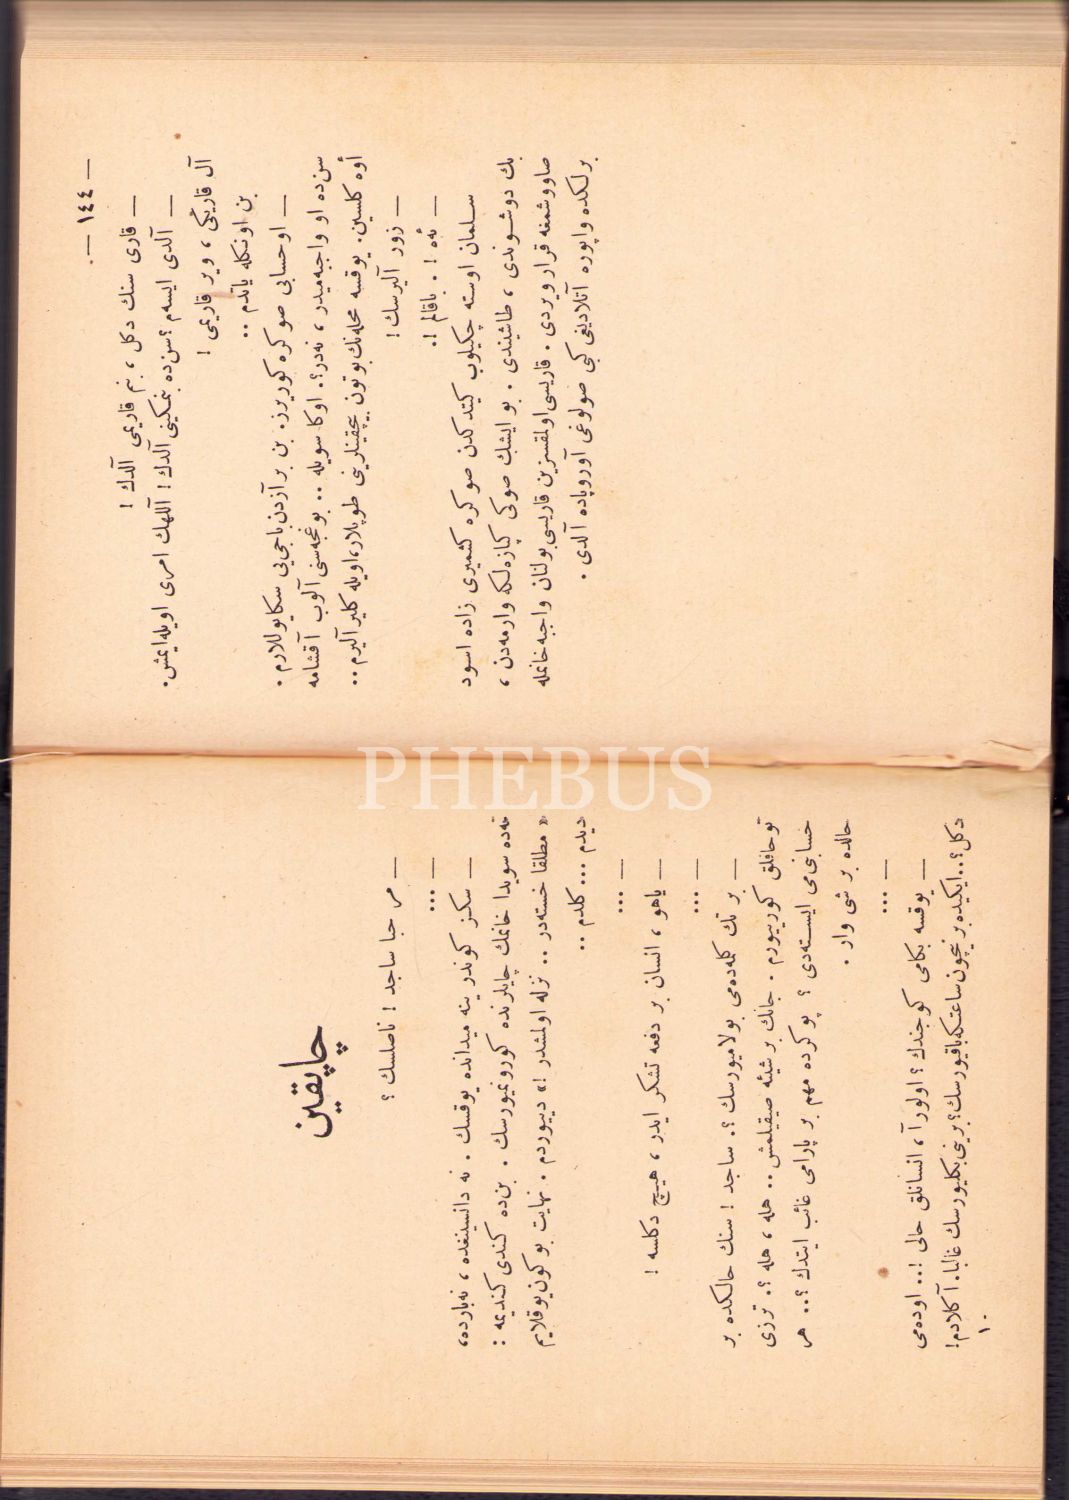 — ١٤٤ —
— قارى سنك دكل ، بنم قاريمى آلدك !
— آلدى ايسهم ؟ سن ده بنمكينى آلدك ! اللهك امرى اويله ايمش .
آل قاريڭى ، وير قاريمى !
بن اونكله ياتدم ..
— اوحسابى صوكره كورورز . بن بر آزدن باجى يى سكا يوللارم .
سن ده او واجبه ميدر ، نه در ؟. اوكا سويله .. بوغجه سنى آلوب آقشامه
أوه كلسين . يوقسه محله نك بوتون پيچقينلرينى طوپلار ، اويله كلير آليرم ..
— زور آليرسك !
— ئه ! . باقالم !.
سلمان اوسته چكيلوب كيتدكدن صوكره كشميرى زاده اسود
بك دوشوندى ، طاشيندى . بو ايشك صوكى كپازه لكه وارمه دن ،
صاووشمغه قرار ويردى . قاريسى اولمقسزين قاريسى بولنان واجبه خانمله
برلكده واپوره آتلاديغى كبى صولوغى آوروپاده آلدى .
چاپقين
— مرحبا ساجد ! ناصلسك ؟
— ...
— سكز كوندر ينه ميدانده يوقسك . نه دانسينغده ، نه بارده ،
نه ده سويدا خانمك چايلرنده كورونميورسك . بن ده كندى كنديمه :
« مطلقا خسته در .. نزله اولمشدر !» دييوردم . نهايت بو كون يوقلايم
ديدم ... كلدم ..
— ...
— ياهو ، انسان بر دفعه تشكر ايدر ، هيچ دكلسه !
— ...
— بر تك كلمه ده مى بولاميورسك ؟. ساجد ! سنك حالكده بر
توحافلق كورييورم . جانك بر شيئه صيقيلمش .. هله ، هله ؟. ترزى
حسابنى مى ايسته دى ؟ پوكرده مهم بر پارامى غائب ايتدك ؟.. هر
حالده بر شى وار .
— ...
— يوقسه بكامى كوجندك ؟ اولور آ ، انسانلق حالى !.. اوده مى
دكل ؟.. ايكيده بر نيچون ساعتكه باقيورسك ؟ برينى بكليورسك غالبا . آكلادم !
١٠
PHEBUS